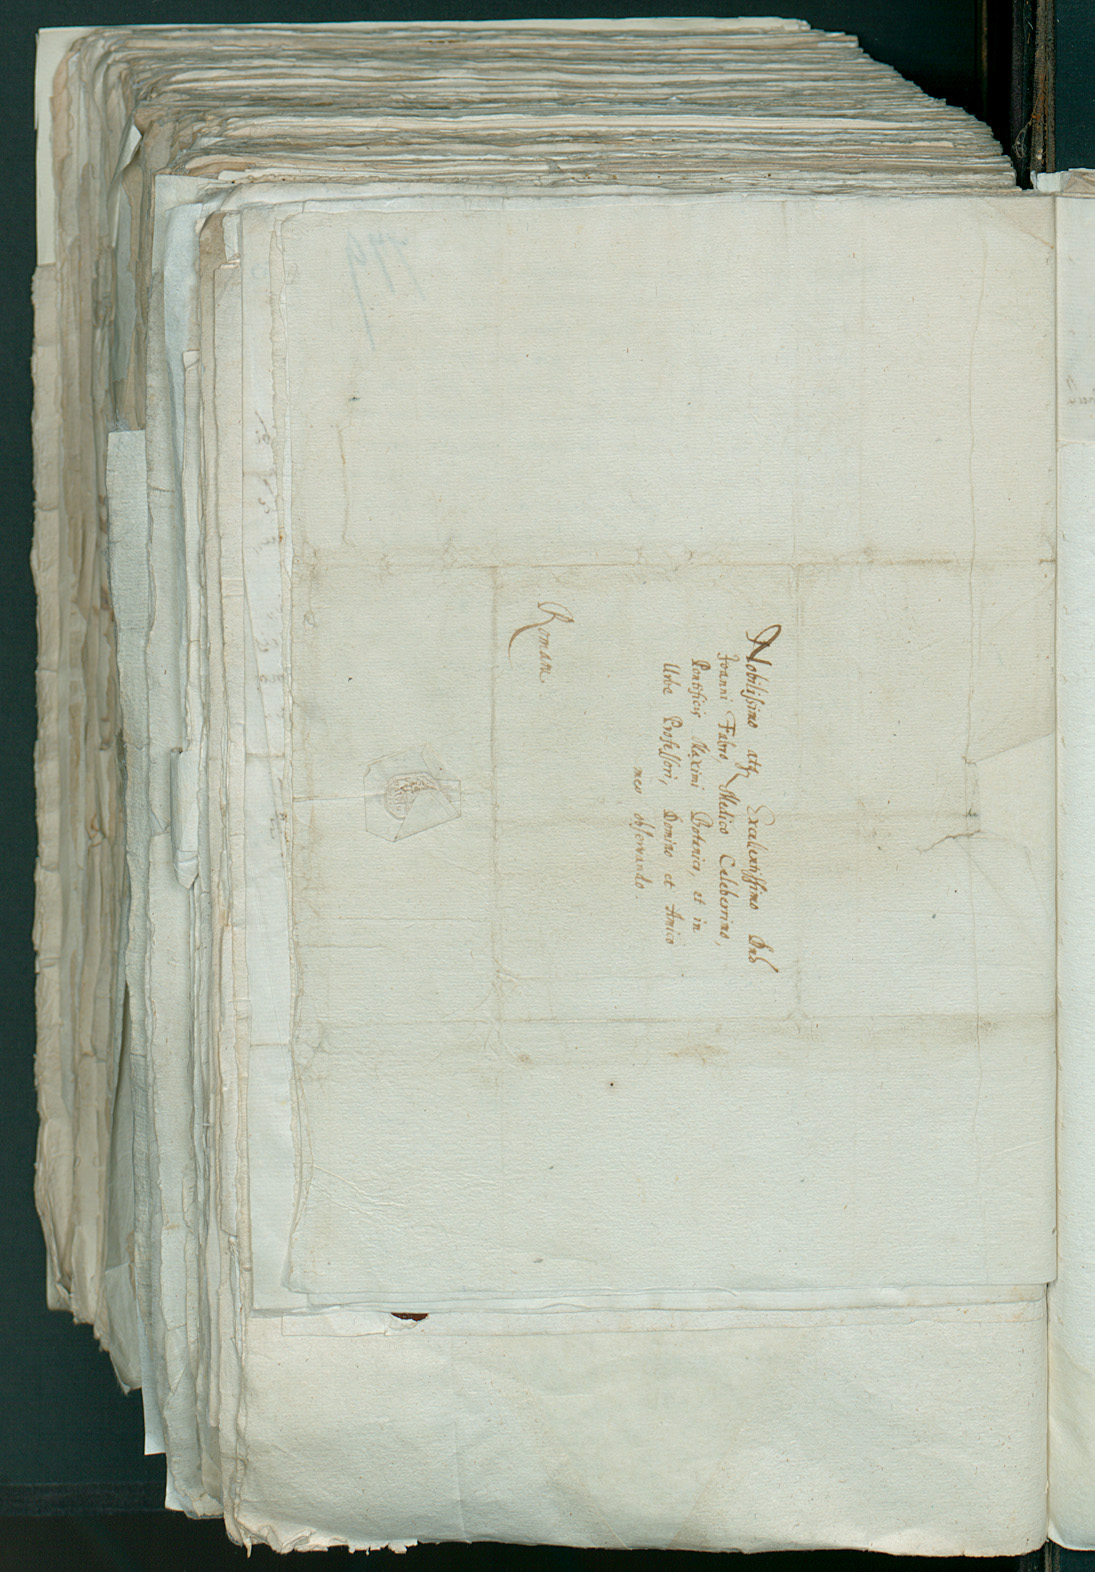 Nobilissimo atq Excellentissimo Dno
Joanni Fabro, Medico Celeberrimo,
Pontificis Maximi Botanico, et in
Urbe Professori, Domino et Amico
meo observando.
Romam.